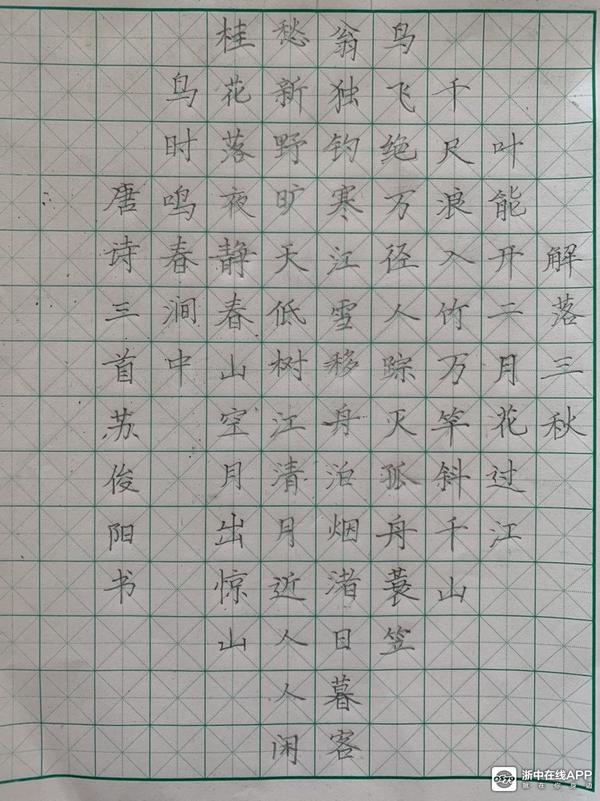 解落三秋
叶能开二月花过江
千尺浪入竹万竿斜千山
鸟飞绝万径人踪灭孤舟蓑笠
翁独钓寒江雪移舟泊烟渚日暮客
愁新野旷天低树江清月近人人闲
桂花落夜静春山空月出惊山
鸟时鸣春涧中
唐诗三首苏俊阳书
浙中在线APP
就在你身边